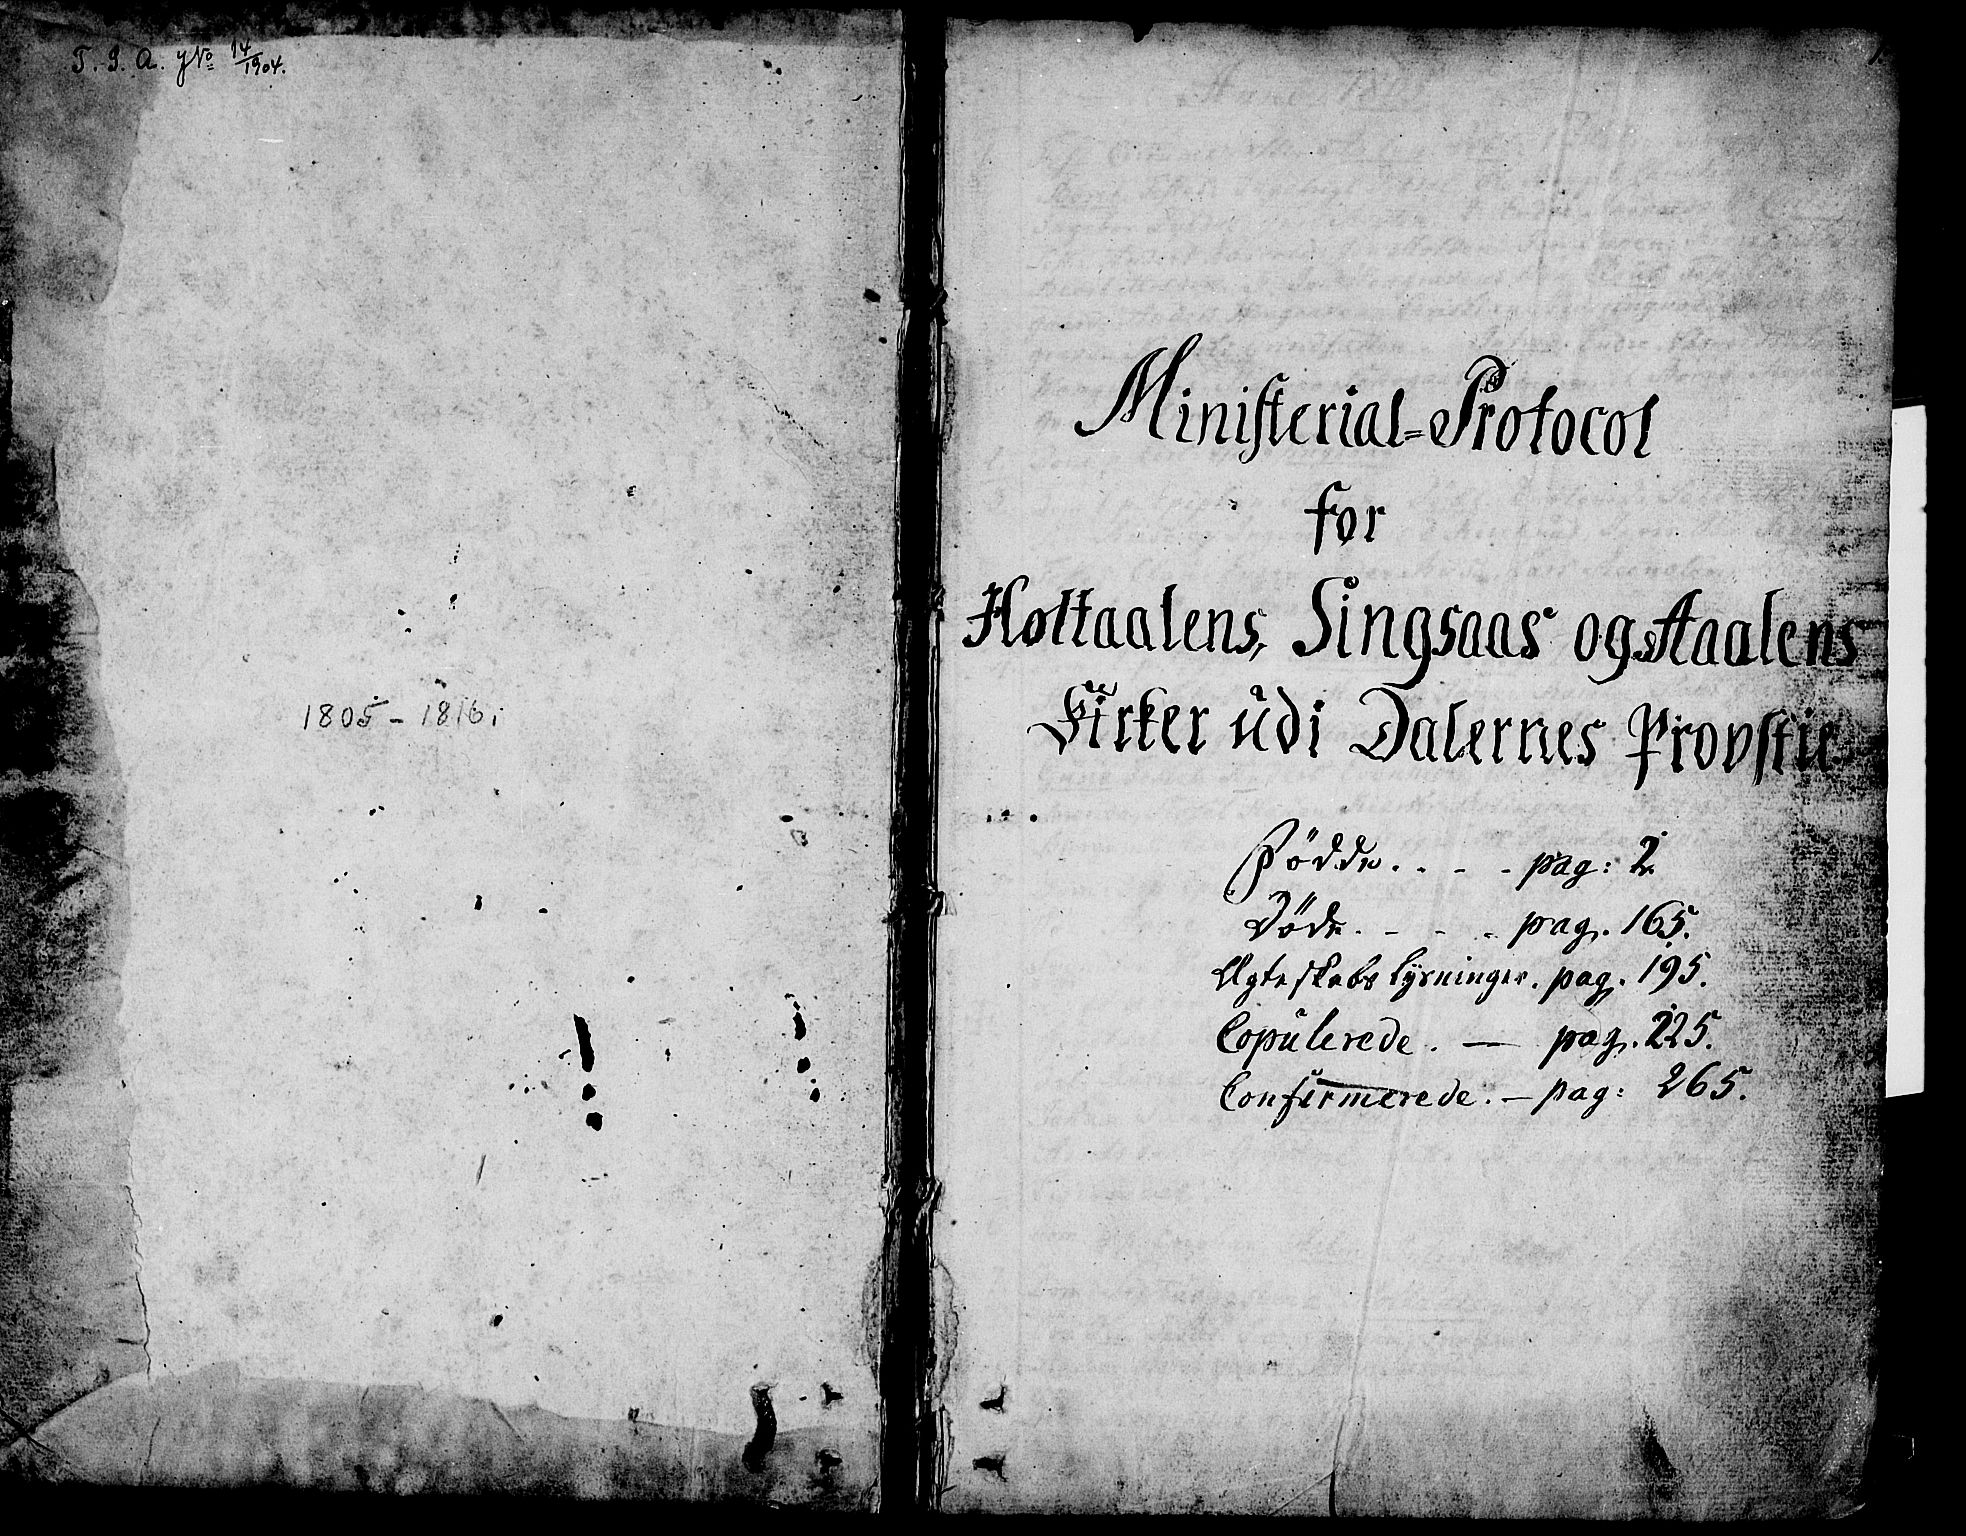 T. S. A. J№ 14/1904.
1805 – 1816.
1.
Ministerial=Protocol
for
Holtaalens, Singsaas og Aalens
Kirker udi Dalernes Provstie
Födde. . - - pag: 2
Döde. - - - pag. 165.
Ægteskabs lysninger. pag. 195.
Copulerede. — pag. 225.
Confirmerede. — pag: 265.